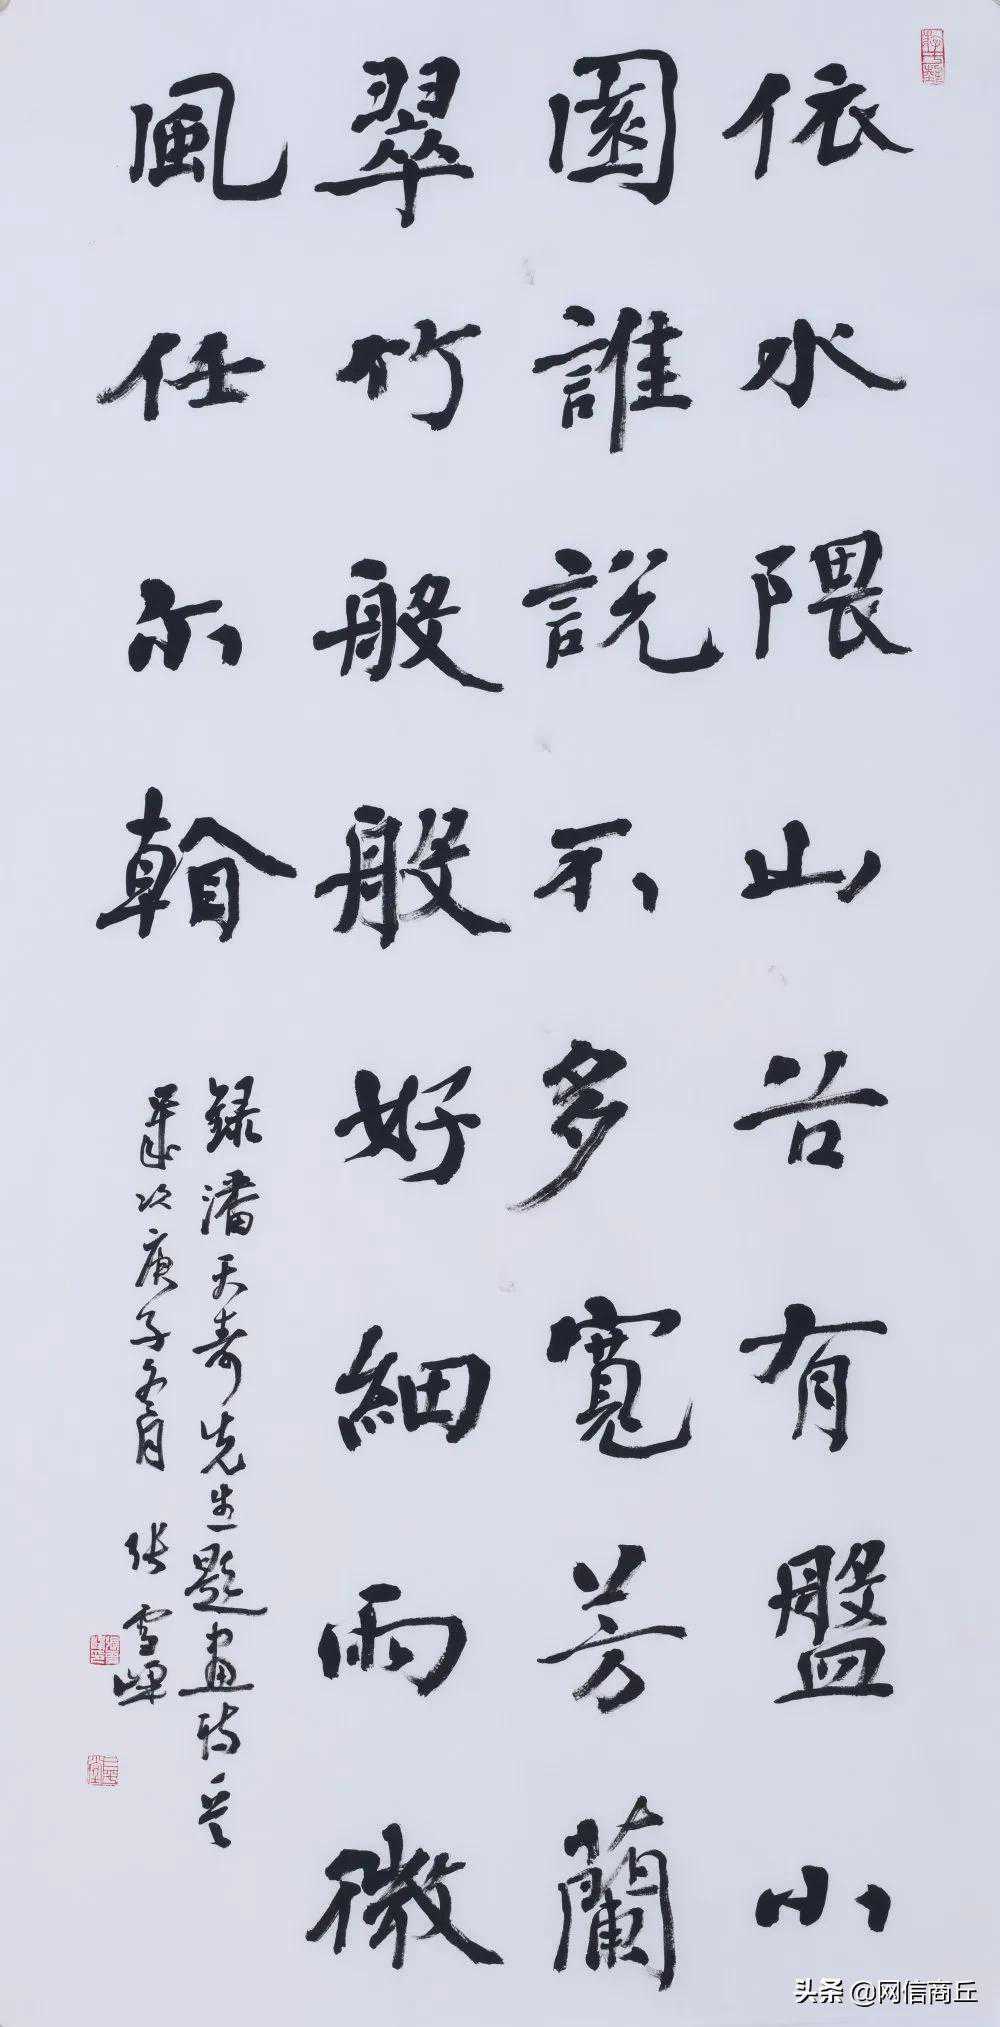 依水隈山有盤小
園誰說不多寬芳蘭
翠竹般般好細雨微
風任尓
録潘天寿先生題畫詩一首
歲次庚子冬月 張雪
头条 @网信商丘